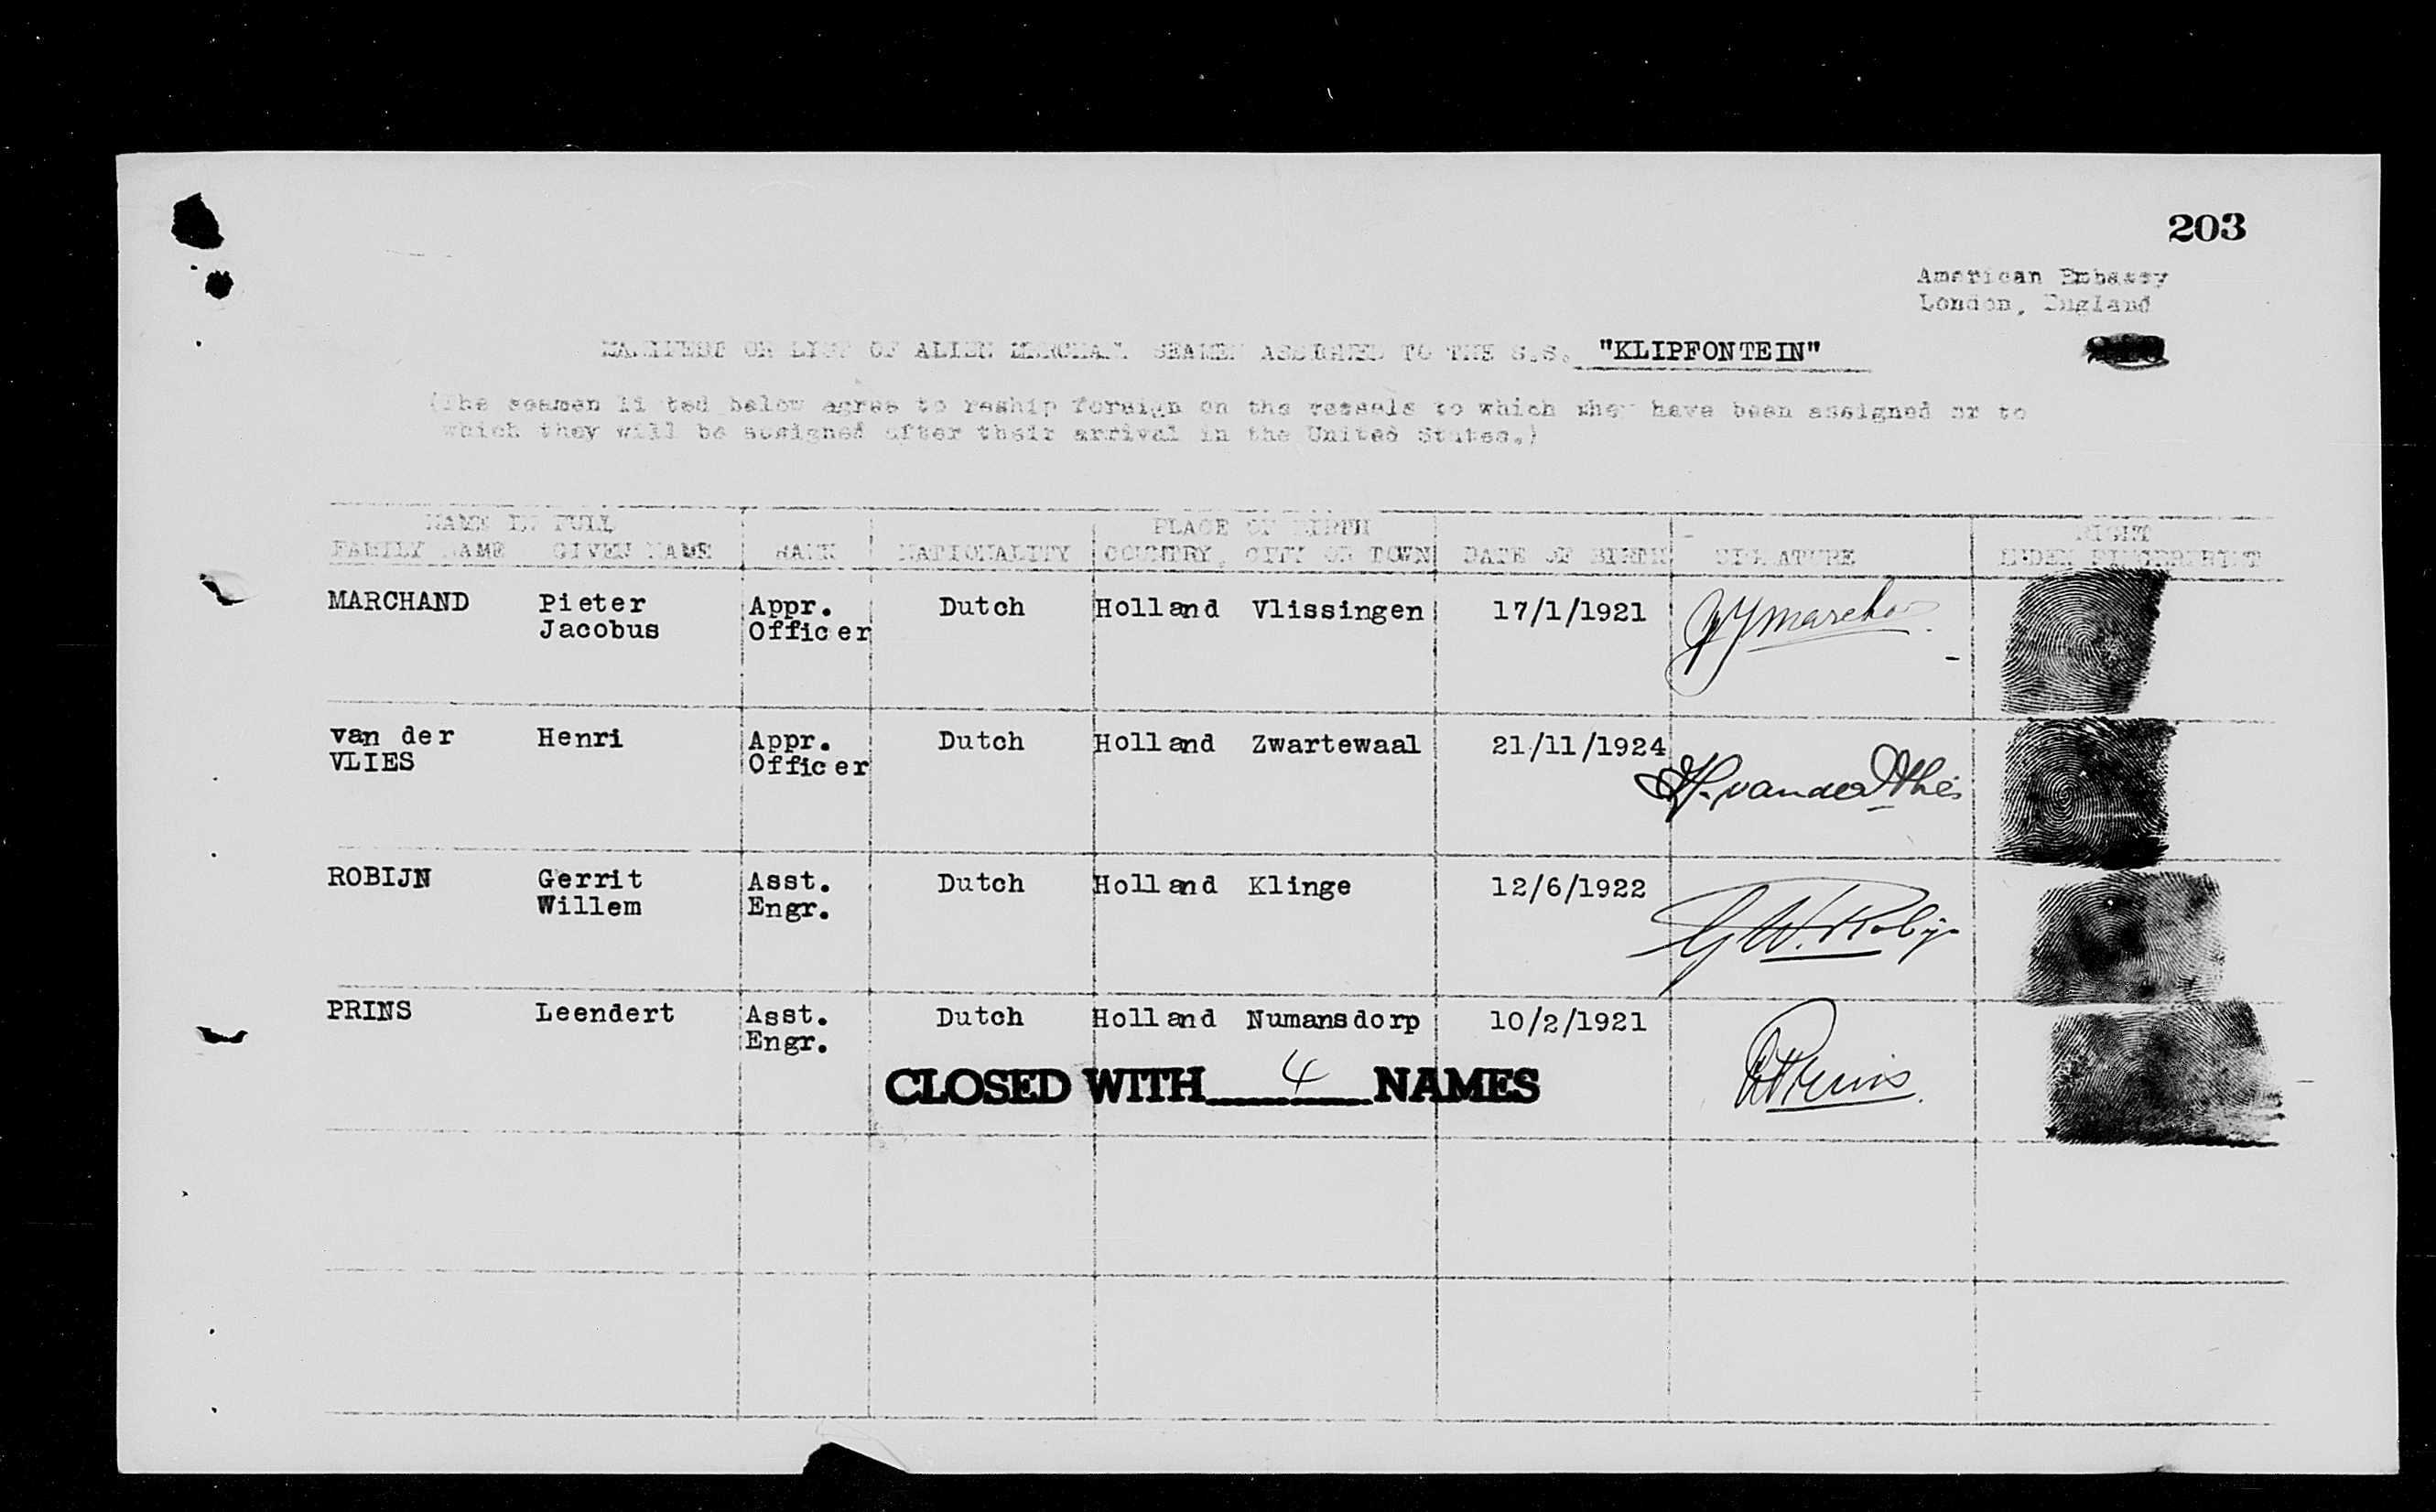 203
American Embassy
London, England
MANIFEST OR LIST OF ALIEN MERCHANT SEAMEN ASSIGNED TO THE S.S. "KLIPFONTEIN"
(The seamen listed below agree to reship foreign on the vessels to which they have been assigned or to
which they will be assigned after their arrival in the United States.)
NAME IN FULL PLACE OF BIRTH RIGHT
FAMILY NAME GIVEN NAME RANK NATIONALITY COUNTRY, CITY OR TOWN DATE OF BIRTH SIGNATURE INDEX FINGERPRINT
MARCHAND Pieter Appr. Dutch Holland Vlissingen 17/1/1921 PJ Marchand
Jacobus Officer
van der Henri Appr. Dutch Holland Zwartewaal 21/11/1924 H. van der Vlies
VLIES Officer
ROBIJN Gerrit Asst. Dutch Holland Klinge 12/6/1922 G.W. Robijn
Willem Engr.
PRINS Leendert Asst. Dutch Holland Numansdorp 10/2/1921 L Prins
Engr.
CLOSED WITH 4 NAMES